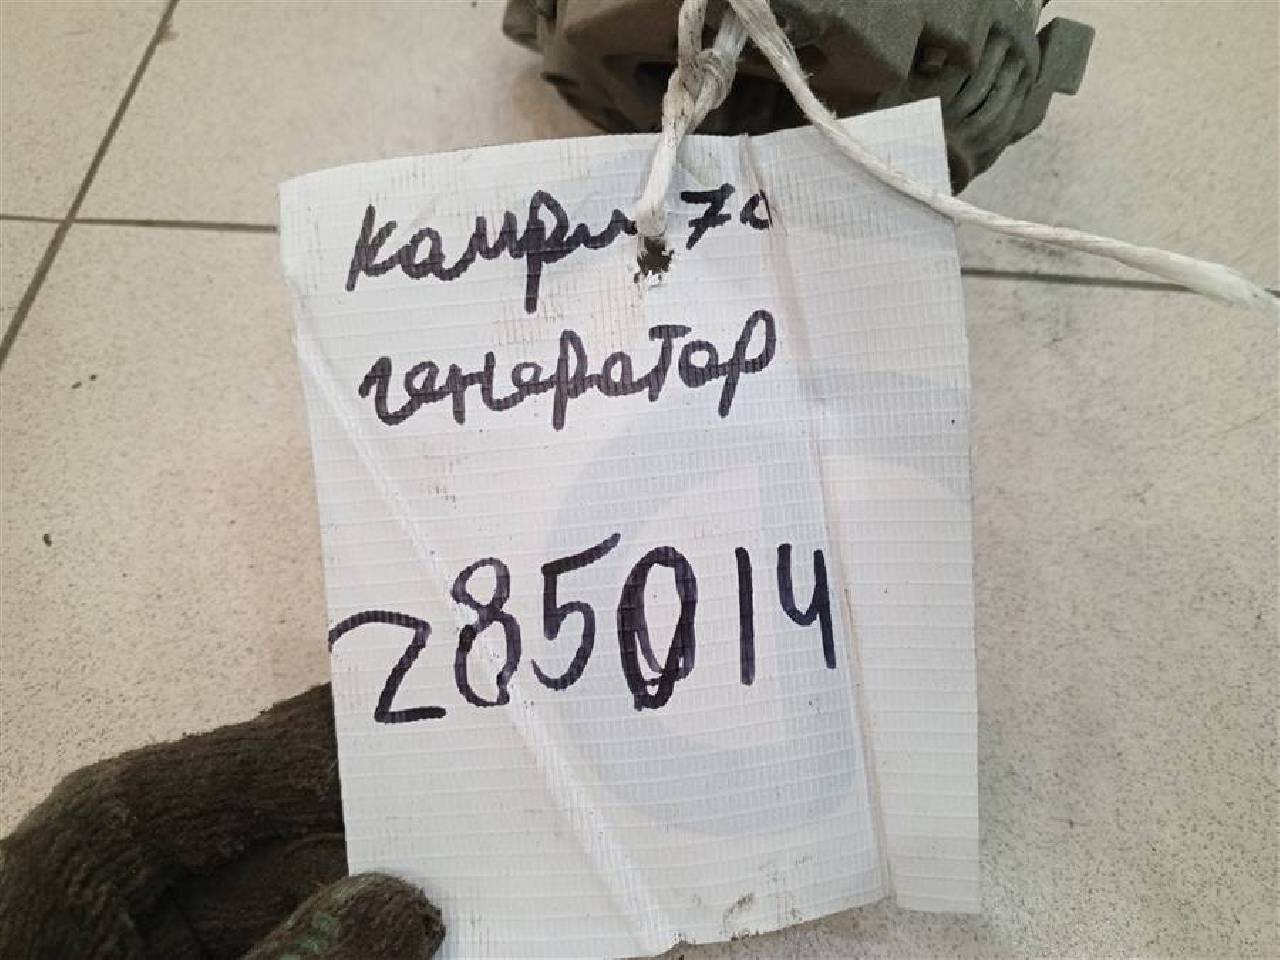 Камри 70
генератор
285014